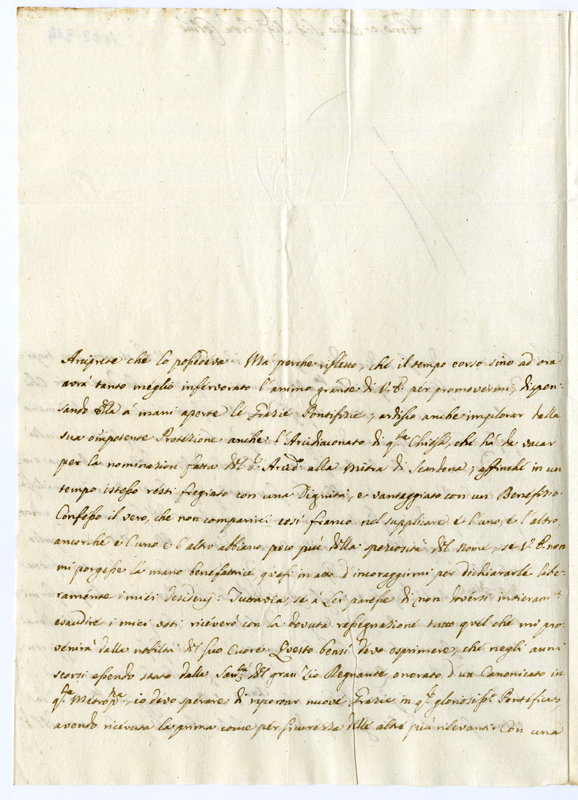 Arciprete che lo possedeva. Ma perche rifletto, che il tempo corso sino ad ora
avrà tanto meglio infervorato l'animo grande di V. E. per promovermi, dispen-
sando Ella à mani aperte le Grazie Pontifizie, ardisco anche implorar dalla
sua onnipotente Protezione anche l'Arcidiaconato di q.ta Chiesa, che hà da vacar
per la nominazion fatta del S.r Arcid.o alla Mitra di Scardona; affinchè in un
tempo istesso resti fregiato con una Dignità, e vantaggiato con un Benefizio.
Confesso il vero, che non comparirei così franco nel supplicare è l'uno, è l'altro,
ancorchè è l'uno è l'altro abbiano poco più della speziosità del nome, se V. E. non
mi porgesse la mano benefattrice quasi in atto d'incoraggirmi per dichiararle libe-
ramente i miei desiderj. Tuttavia se à Lei paresse di non doversi intieram.te
esaudire i miei voti, riceverò con la dovuta rassegnazione tutto quel che mi pro-
venirà dalla nobiltà del suo Cuore. Questo bensì devo esprimere, che negli anni
scorsi essendo stato dalla San.tà del gran Zio Regnante onorato d'un Canonicato in
q.ta Metrop.na, io devo sperare di riportar nuove Grazie in q.to gloriosiss.o Pontificato
avendo ricevuta la prima come per sicurezza delle altre più rilevanti. Con una